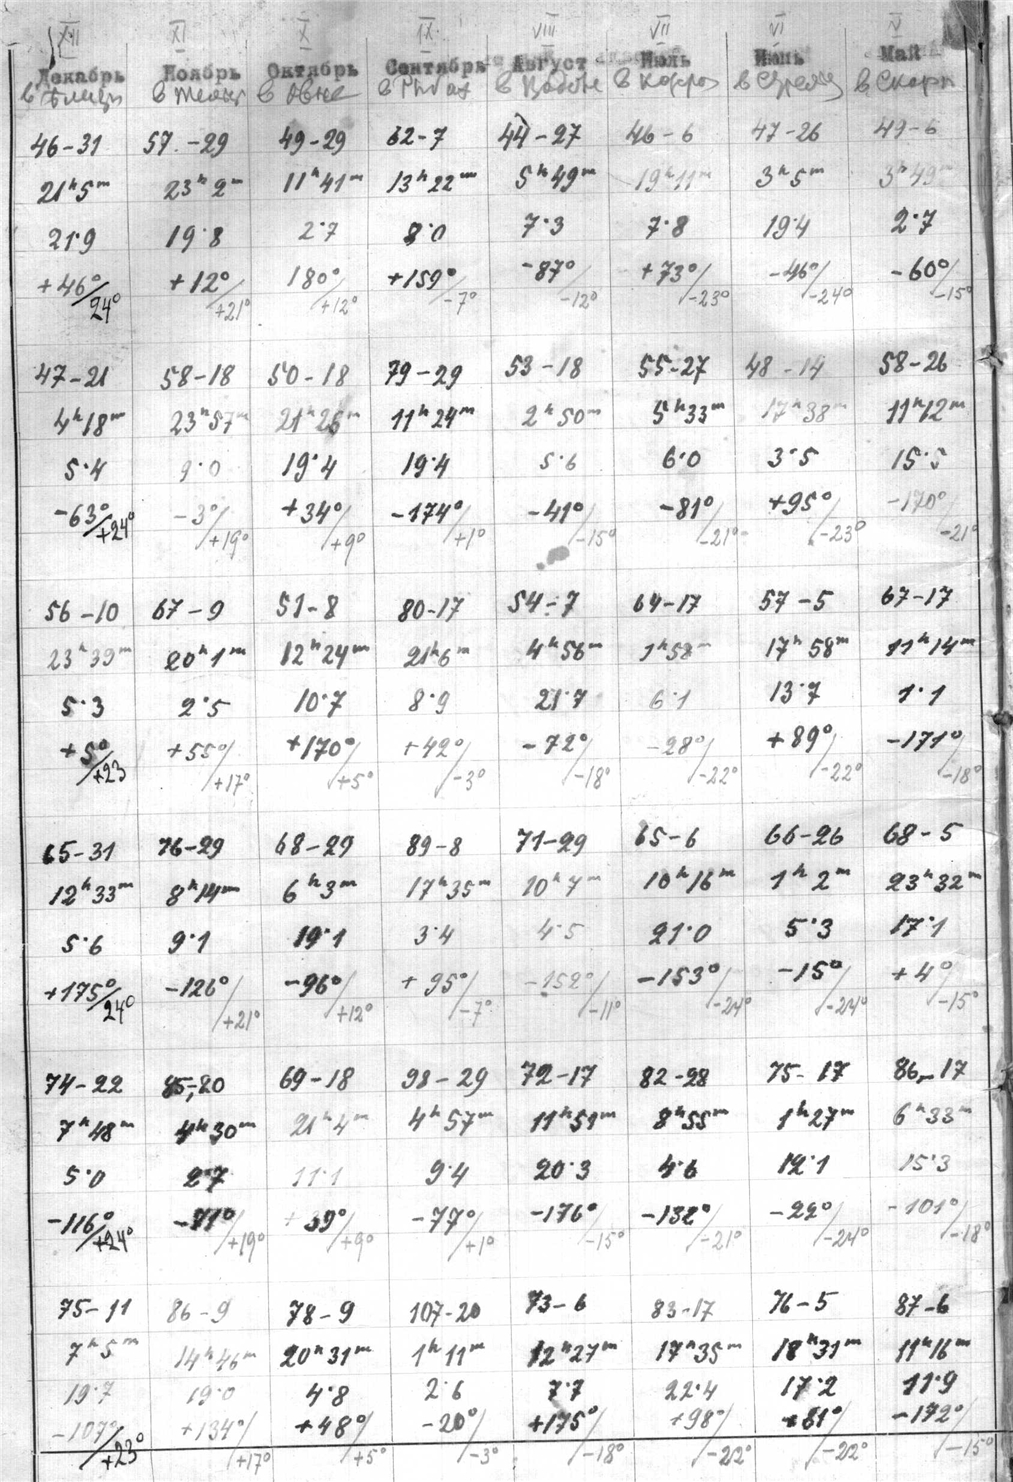 XII XI X IX VIII VII VI V
Декабрь Ноябрь Октябрь Сентябрь Август Июль Июнь Май
в в в Овне в Рыбах в в в в
46-31 57-29 49-29 62-7 44-27 46-6 47-26 49-6
21h5m 23h2m 11h41m 13h22m 5h49m 19h11m 3h5m 3h49m
21.9 19.8 2.7 8.0 7.3 7.8 19.4 2.7
+46°/24° +12°/+21° 180°/+12° +159°/-7° -87°/-12° +73°/-23° -46°/-24° -60°/-15°
47-21 58-18 50-18 79-29 53-18 55-27 48-14 58-26
4h18m 23h57m 21h26m 11h24m 2h50m 5h33m 17h38m 11h12m
5.4 9.0 19.4 19.4 5.6 6.0 3.5 15.5
-63°/+24° -3°/+19° +34°/+9° -174°/+1° -41°/-15° -81°/-21° +95°/-23° -170°/-21°
56-10 67-9 51-8 80-17 54-7 64-17 57-5 67-17
23h39m 20h1m 12h24m 21h6m 4h56m 1h58m 17h58m 11h14m
5.3 2.5 10.7 8.9 21.7 6.1 13.7 1.1
+5°/+23 +55°/+17° +170°/+5° +42°/-3° -72°/-18° -28°/-22° +89°/-22° -171°/-18°
65-31 76-29 68-29 89-8 71-29 65-6 66-26 68-5
12h33m 8h14m 6h3m 17h35m 10h7m 10h16m 1h2m 23h32m
5.6 9.1 19.1 3.4 4.5 21.0 5.3 17.1
+175°/24° -126°/+21° -96°/+12° +95°/-7° -152°/-11° -153°/-24° -15°/-24° +4°/-15°
74-22 85-20 69-18 98-29 72-17 82-28 75-17 86-17
7h48m 4h30m 21h4m 4h57m 11h59m 8h55m 1h27m 6h33m
5.0 2.7 11.1 9.4 20.3 4.6 12.1 15.3
-116°/+24° -71°/+19° +39°/+9° -77°/+1° -176°/-15° -132°/-21° -22°/-24° -101°/-18°
75-11 86-9 78-9 107-20 73-6 83-17 76-5 87-6
7h5m 14h46m 20h31m 1h11m 12h27m 17h35m 18h31m 11h16m
19.7 19.0 4.8 2.6 7.7 22.4 17.2 11.9
-107°/+23° +134°/+17° +48°/+5° -20°/-3° +175°/-18° +98°/-22° +81°/-22° -172°/-15°